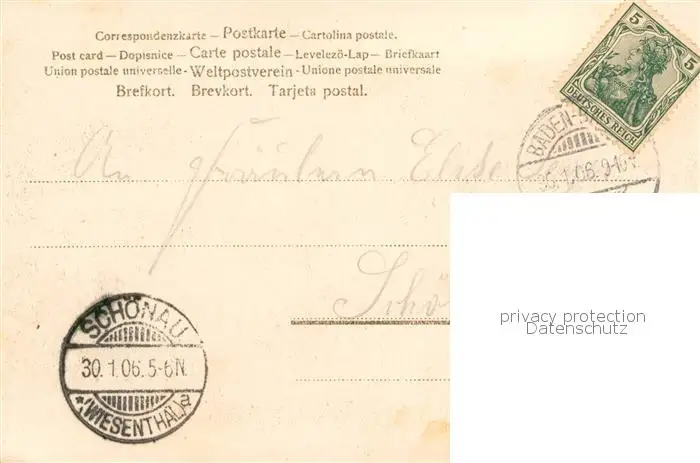 Correspondenzkarte – Postkarte – Cartolina postale.
Post card – Dopisnice – Carte postale – Levelező-Lap – Briefkaart
Union postale universelle - Weltpostverein - Unione postale universale
Brefkort. Brevkort. Tarjeta postal.
5 5
DEUTSCHES REICH
BADEN-
30.1.06. 9-10 V.
An Fräulein Elise
Schö
privacy protection
Datenschutz
SCHÖNAU
30. 1. 06. 5-6 N.
* (WIESENTHAL) a